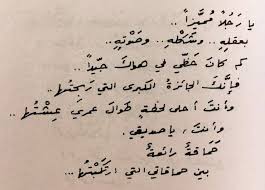 يا رَجُلاً مُمَيَّزاً ..
بعقلِهِ .. وشَكْلِهِ .. وصَوْتِهِ ..
كم كانَ حَظِّي في هواكَ جَيِّداً ..
فإنَّكَ الجائزةُ الكبرى التي رَبِحْتُها ..
وأنتَ أحلى لحظةٍ طُوالَ عمري عِشْتُها ..
وأنتَ ، يا صديقي .
حَمَاقةٌ رائعةٌ
بين حماقاتي التي ارتكَبْتُها ...